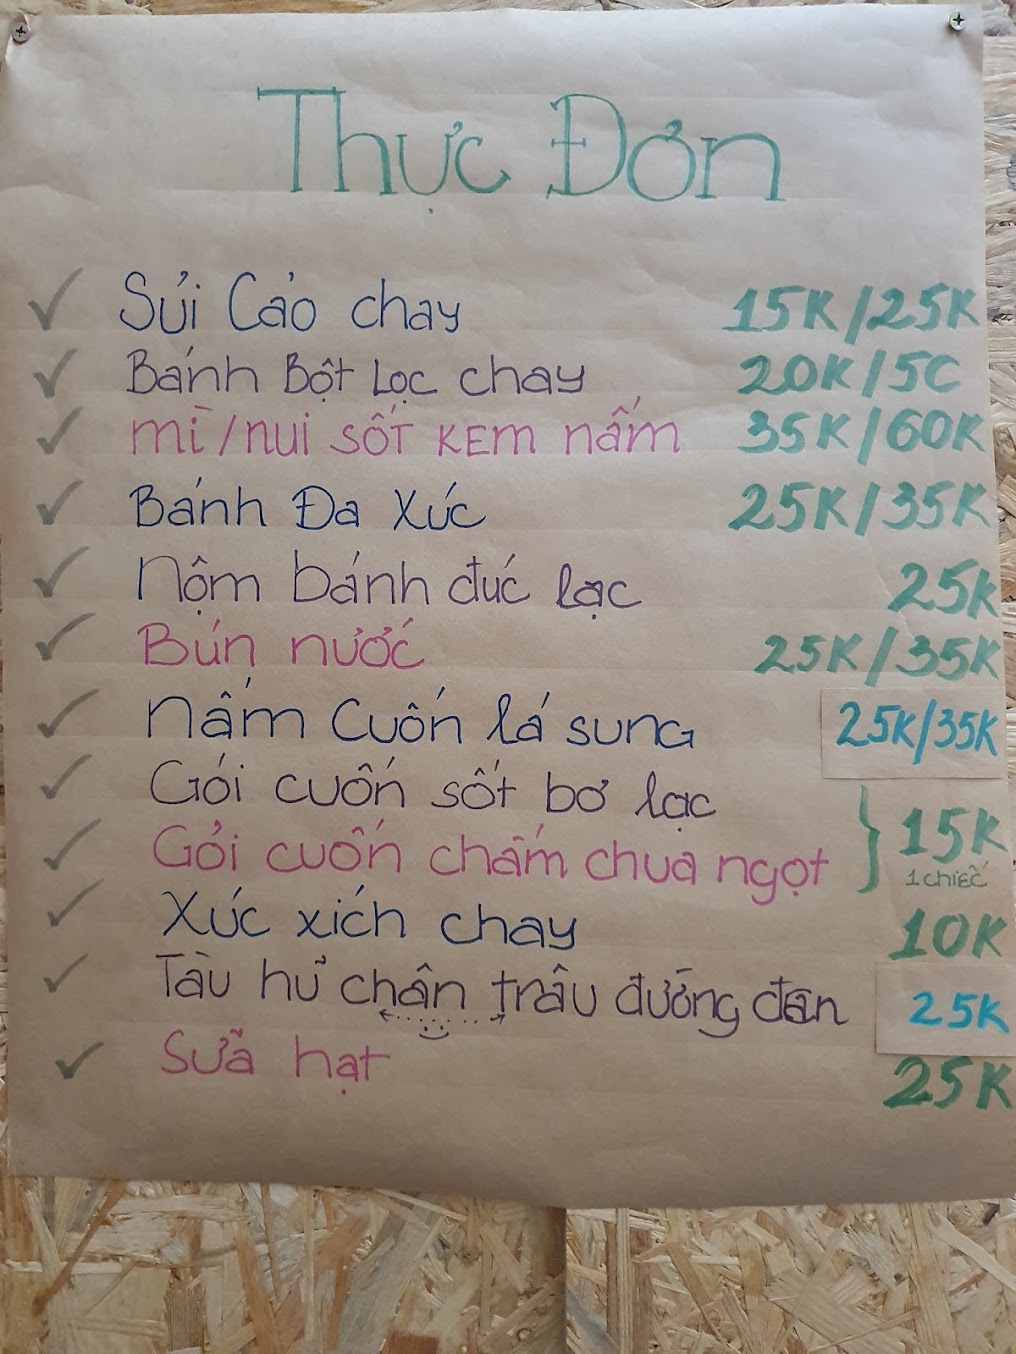 Thực Đơn
Sủi Cảo chay 15K/25K
Bánh Bột Lọc chay 20K/5C
mì/nui sốt kem nấm 35K/60K
Bánh Đa Xúc 25K/35K
Nộm bánh đúc lạc 25K
Bún nước 25K/35K
Nấm cuốn lá sung 25K/35K
Gói cuốn sốt bơ lạc
Gỏi cuốn chấm chua ngọt
15K
1 chiếc
Xúc xích chay 10K
Tàu hủ chân trâu đường đen 25K
Sữa hạt 25K